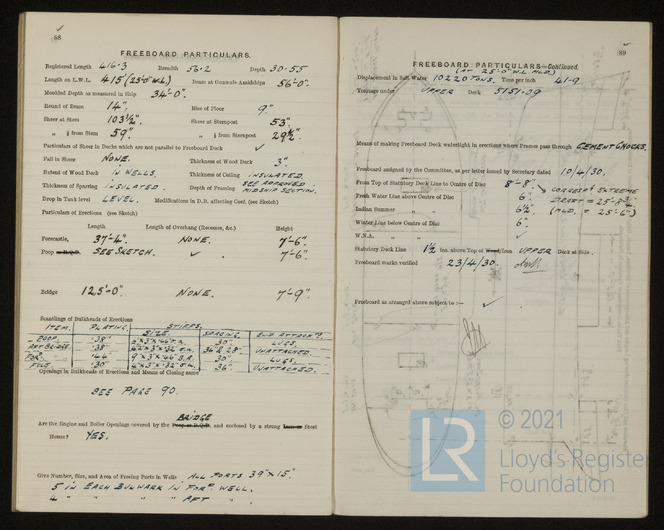 88
FREEBOARD PARTICULARS.
Registered Length 416.3 Breadth 56.2 Depth 30.55
Length on L.W.L. 415 (25'0" W.L.) Beam at Gunwale Amidships 56'-0".
Moulded Depth as measured in Ship 34'-0".
Round of Beam 14". Rise of Floor 9"
Sheer at Stem 103½". Sheer at Sternpost 53".
" ⅛ from Stem 59". " ⅛ from Sternpost 29½".
Particulars of Sheer in Decks which are not parallel to Freeboard Deck ✓
Fall in Sheer NONE. Thickness of Wood Deck 3".
Extent of Wood Deck IN WELLS. Thickness of Ceiling INSULATED.
Thickness of Sparring INSULATED. Depth of Framing SEE APPROVED MIDSHIP SECTION.
Drop in Tank level LEVEL. Modifications in D.B. affecting Coef. (see Sketch)
Particulars of Erections (see Sketch)
Length Length of Overhang (Decorous, &c.) Height
Forecastle, 37'-4". NONE. 7'-6".
Poop SEE SKETCH. ✓ 7'-6".
Bridge 125'-0". NONE. 7'-9".
Scantlings of Bulkheads of Erections
ITEM. PLATING. STIFFS.
SIZE. SPACING. END ATTACHTS.
POOP .38" 30". LUGS.
AFT BRIDGE .38" 36" & 28". UNATTACHED.
FOR. " .44" 9"×3"×.46" B.A. 30". LUGS.
FCLE. .30" 36" UNATTACHED.
Openings in Bulkheads of Erections and Means of Closing same
SEE PAGE 90.
BRIDGE
Are the Engine and Boiler Openings covered by the Poop or R.Q.D. and enclosed by a strong Iron or Steel
House? YES.
Give Number, Size, and Area of Freeing Ports in Wells ALL PORTS 39"×15".
5 IN EACH BULWARK IN FORD WELL.
4 " " " " AFT " .
89
FREEBOARD PARTICULARS—Continued.
(AT 25'-0" W.L. MLD.)
Displacement in Salt Water 10220 TONS. Tons per inch 41.9
Tonnage under UPPER Deck 5151.09
Means of making Freeboard Deck watertight in erections where Frames pass through CEMENT CHOCKS.
Freeboard assigned by the Committee, as per letter issued by Secretary dated 10/4/30.
From Top of Statutory Deck Line to Centre of Disc 8'-8"
CORRESP. EXTREME
Fresh Water Line above Centre of Disc 6".
DRAFT = 25'-8¾"
Indian Summer " " 6½".
(MLD. = 25'-6")
Winter Line below Centre of Disc 6".
W.N.A. " " ✓
Statutory Deck Line 1½ ins. above Top of Wood/Iron UPPER Deck at Side.
Freeboard marks verified 23/4/30.
Freeboard as arranged above subject to:— ✓
© 2021
LR
Lloyd's Register
Foundation